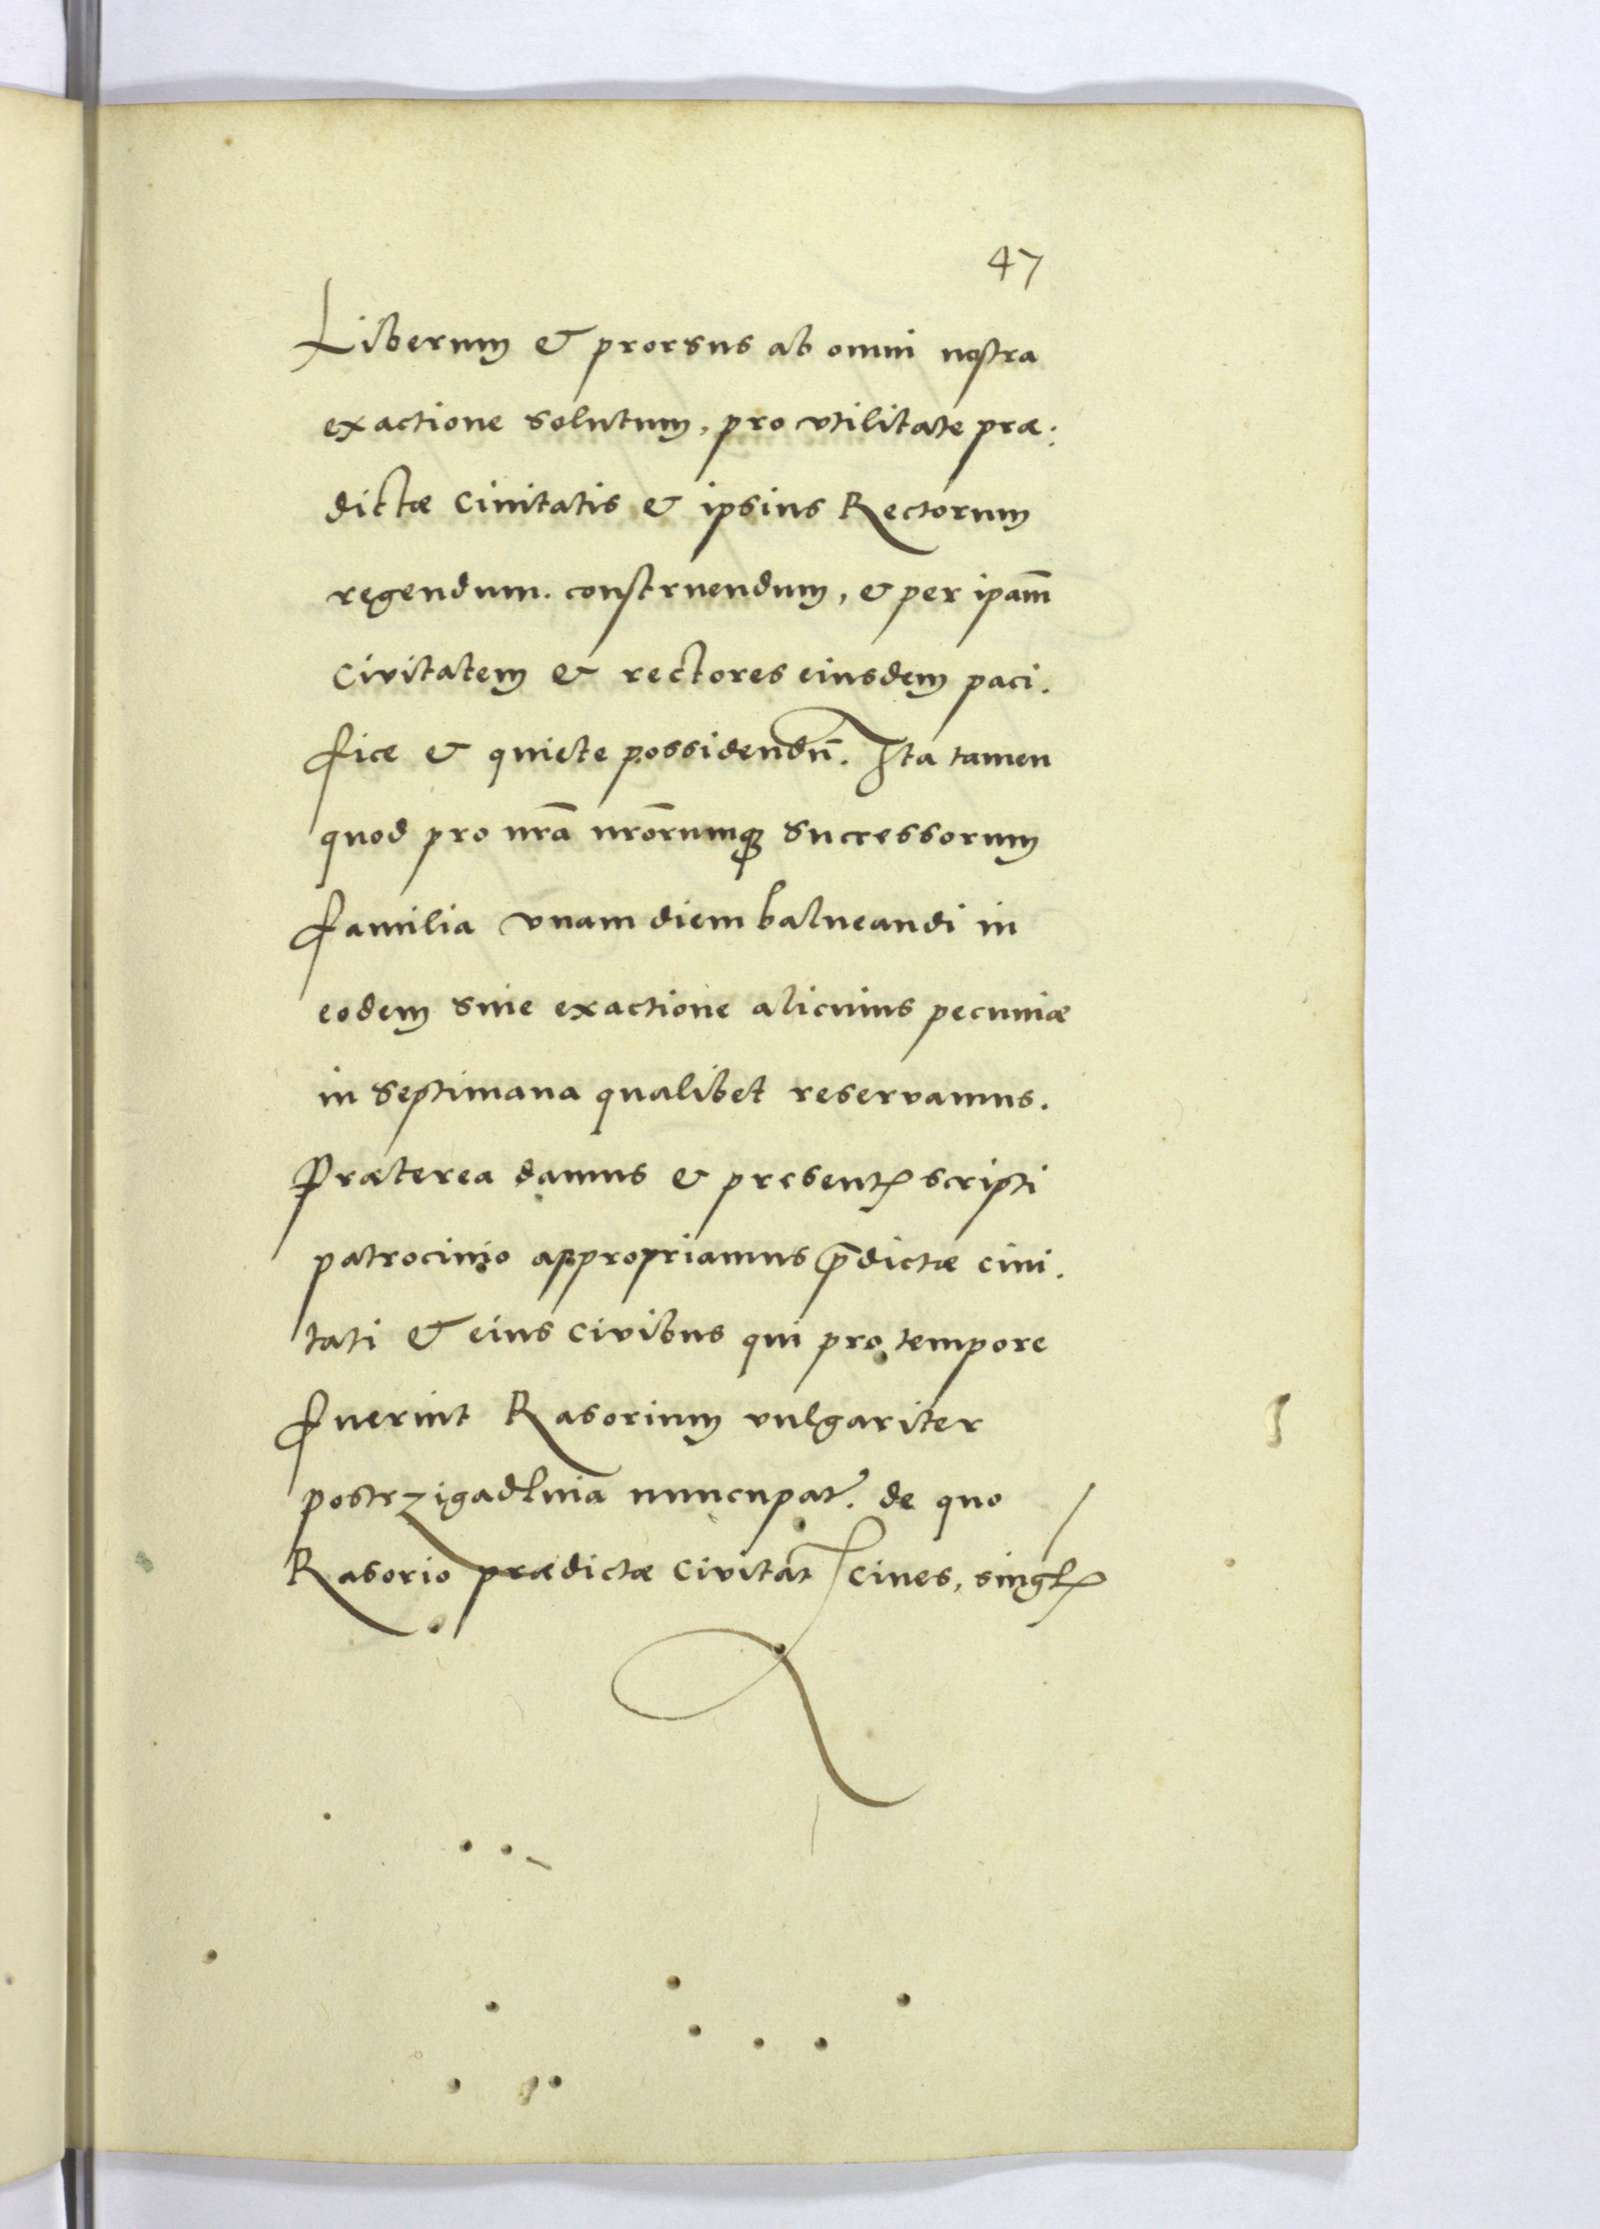 47
Liberum & prorsus ab omni nostra
exactione solutum, pro vtilitate præ:
dictæ Ciuitatis & ipsius Rectorum
regendum. construendum, & per ipam̄
Civitatem & rectores eiusdem paci.
fice & quiete possidendū. Ita tamen
quod pro nrā nrōrumq; Successorum
familia vnam diem balneandi in
eodem sine exactione alicuius pecuniæ
in Septimana qualibet reservamus.
Præterea damus & presentꝭ scripti
patrocinio appropriamus p̄dictæ ciui.
tati & eius civibus qui pro tempore
fuerint Rasorium vulgariter
postrzigadlnia nuncupat̄. de quo
Rasorio prædictæ Civitat̄ ciues, singlꝭ